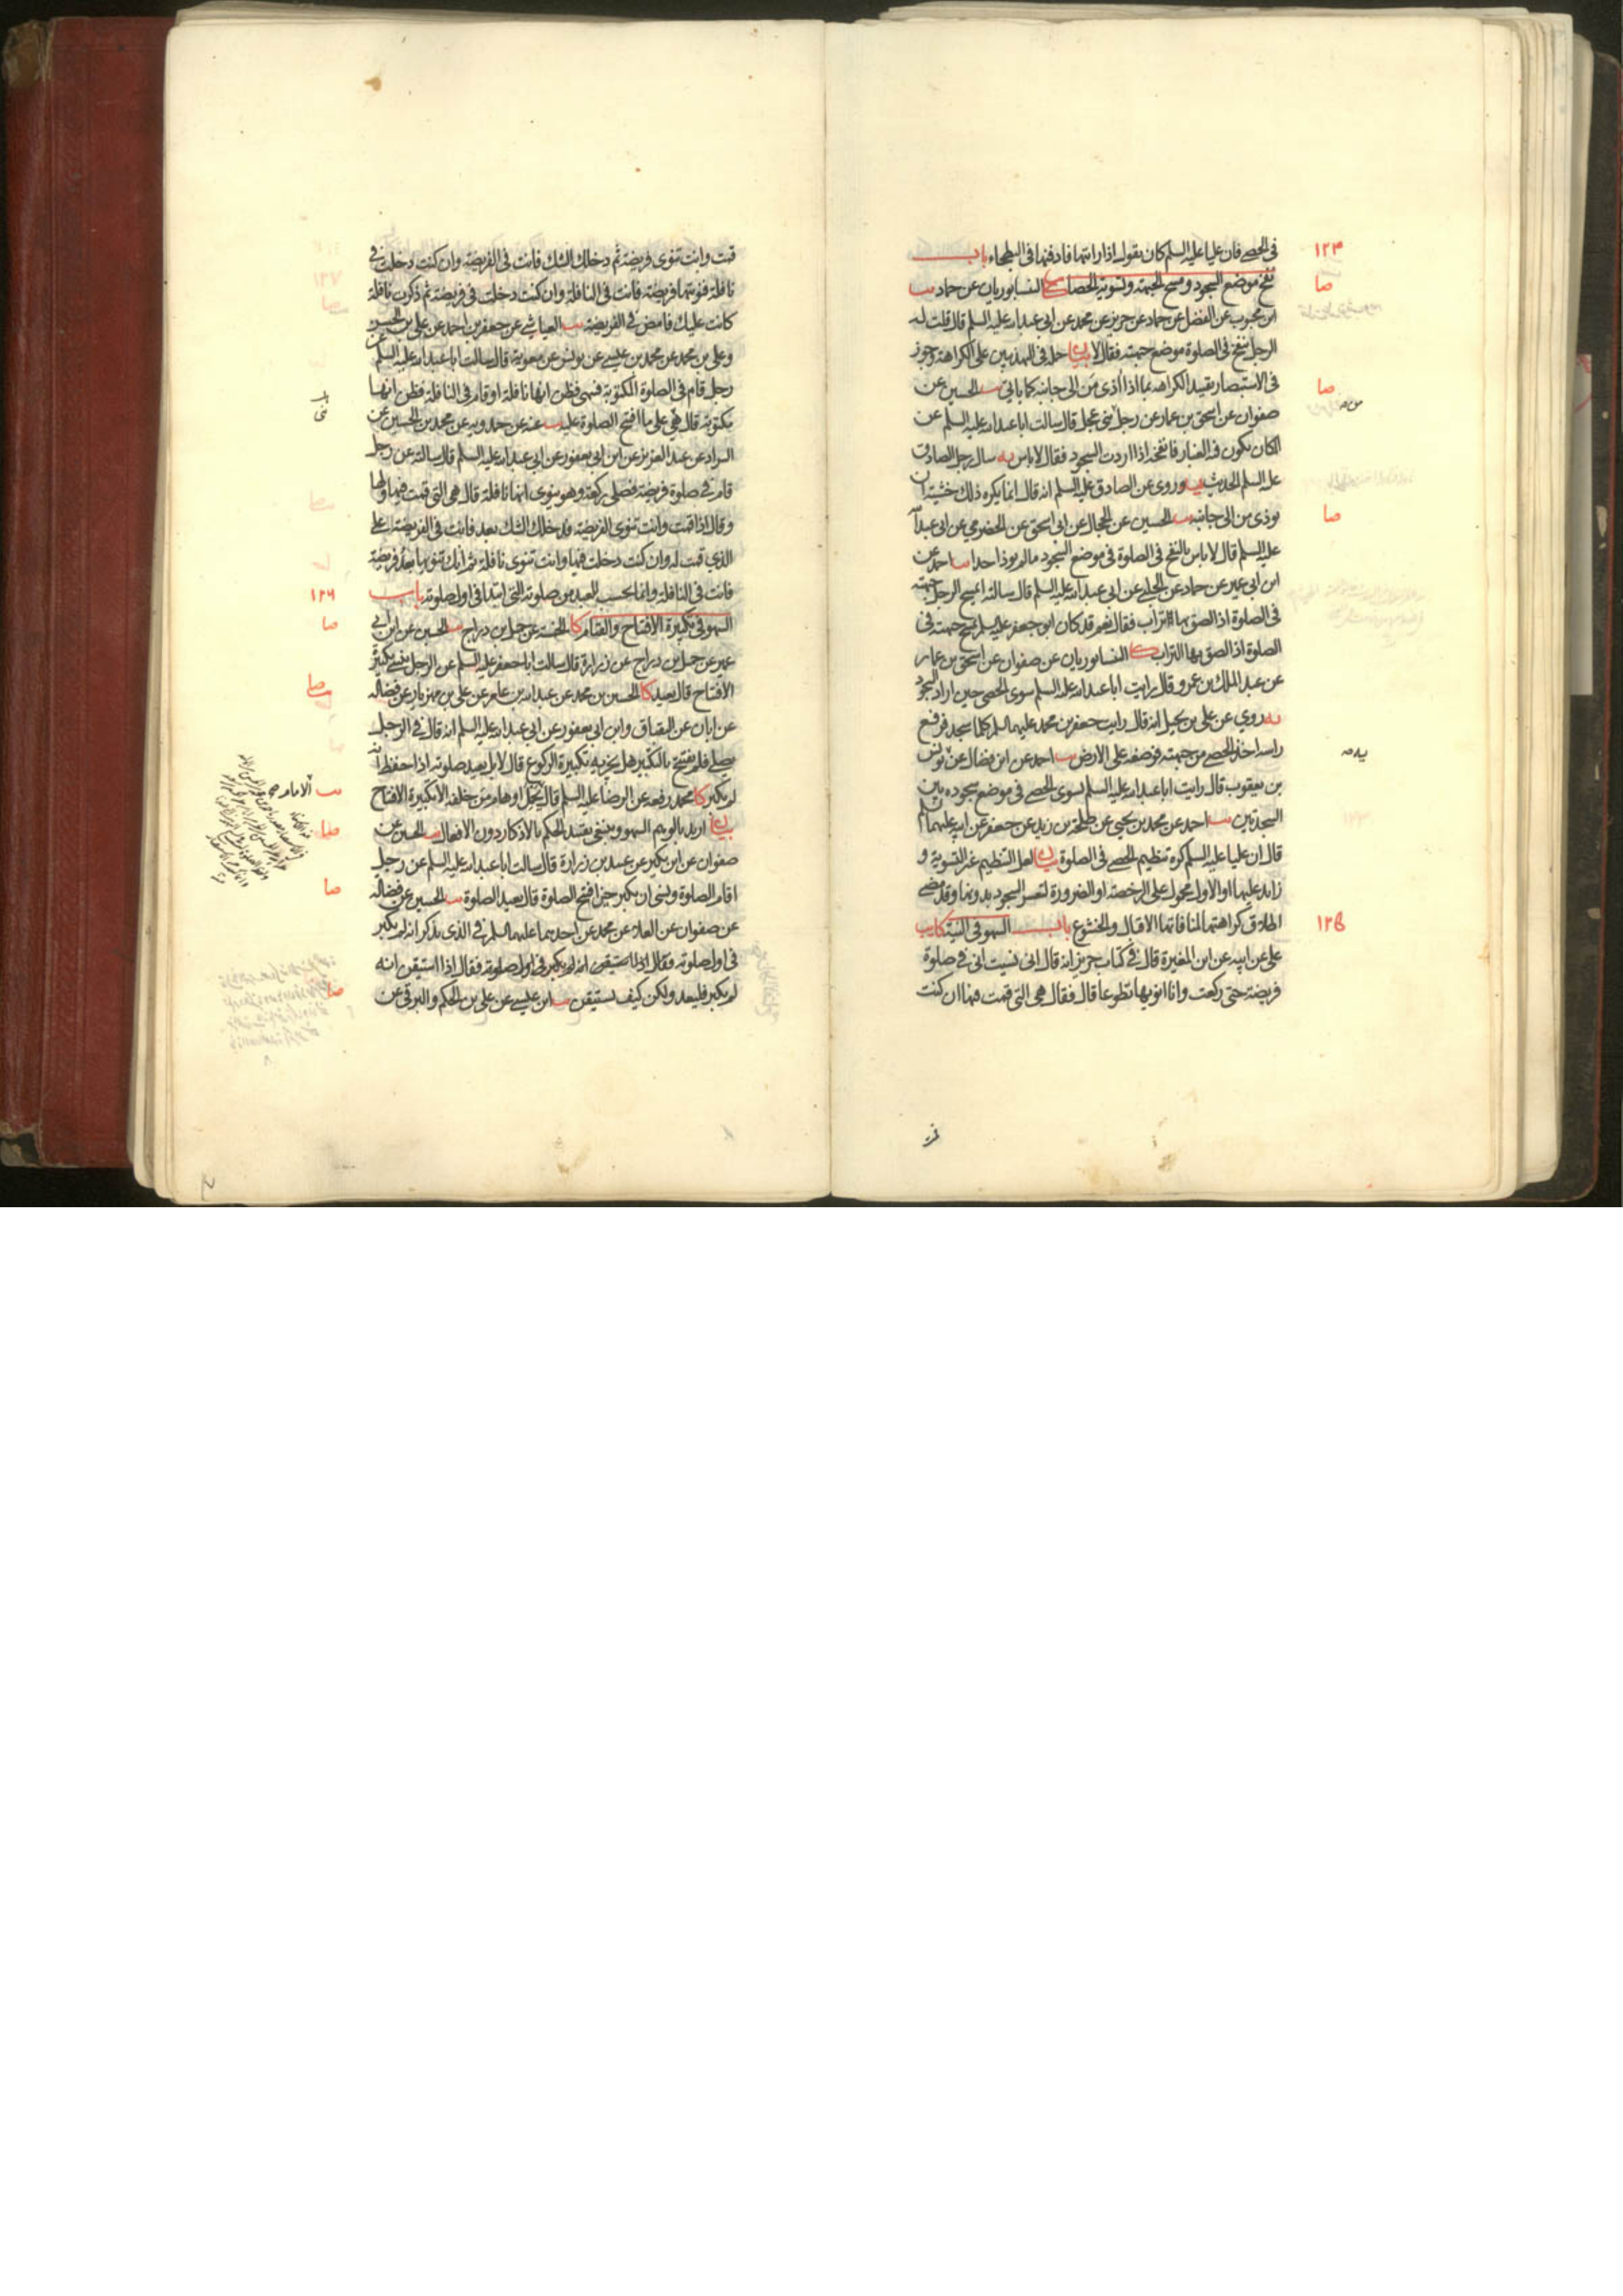 ١٢٣
فى الحصى فان عليا عليه السلم كان يقول اذا رايتها فادفنها فى البطحاء باب
صا
نفخ موضع السجود ومسح الجبهة وتسوية الحصا كا النيسابوريان عن حماد يب
ابن محبوب عن الفضل عن حماد عن حريز عن محمد عن ابى عبد الله عليه السلم قال قلت له
الرجل ينفخ فى الصلوة موضع جبهته فقال لا بيان حمله فى التهذيبين على الكراهة وجوز
صا
فى الاستبصار تقييد الكراهه بما اذا اذى من الى جانبه كما ياتى يب الحسين عن
صفوان عن اسحق بن عمار عن رجل من بنى عجل قال سالت ابا عبد الله عليه السلم عن
المكان يكون فيه الغبار فانفخه اذا اردت السجود فقال لا باس يه سال رجل الصادق
عليه السلم الحديث يه وروى عن الصادق عليه السلم انه قال انما يكره ذلك خشية ان
صا
يوذى من الى جانبه يب الحسين عن الحجال عن ابى اسحق عن الحضرمي عن ابى عبد الله
عليه السلم قال لا باس بالنفخ فى الصلوة فى موضع السجود ما لم يوذ احدا يب احمد عن
ابن ابى عمير عن حماد عن الحلبى عن ابى عبد الله عليه السلم قال سالته ايمسح الرجل جبهته
فى الصلوة اذا لصق بها التراب فقال نعم قد كان ابو جعفر عليه السلم يمسح جبهته فى
الصلوة اذا لصق بها التراب كا النيسابوريان عن صفوان عن اسحق بن عمار
عن عبد الملك بن عمرو قال رايت ابا عبد الله عليه السلم سوى الحصى حين اراد السجود
يه روي عن على بن بجيل انه قال رايت جعفر بن محمد عليهما السلم كلما سجد فرفع
راسه اخذ الحصى من جبهته فوضعه على الارض يب احمد عن ابن فضال عن يونس
بن يعقوب قال رايت ابا عبد الله عليه السلم يسوى الحصى فى موضع سجوده بين
السجدتين يب احمد عن محمد بن يحيى عن طلحة بن زيد عن جعفر عن ابيه عليهما السلم
قال ان عليا عليه السلم كره تنظيم الحصى فى الصلوة بيان لعل التنظيم غير التسوية و
زايد عليها او الاول محمول على الرخصة او الضرورة لتعسر السجود بدونها وقد مضى
١٢٥
اطلاق كراهتهما لمنافاتهما الاقبال والخشوع باب السهو فى النية كا يب
على عن ابيه عن ابن المغيرة قال فى كتاب حريز انه قال انى نسيت انى فى صلوة
فريضة حتى ركعت وانا انويها تطوعا قال فقال هى التى قمت فيها ان كنت
قمت وانت تنوى فريضة ثم دخلك الشك فانت فى الفريضة وان كنت دخلت فى
نافلة فنويتها فريضة فانت فى النافلة وان كنت دخلت فى فريضة ثم ذكرت نافلة
كانت عليك فامض فى الفريضة يب العياشي عن جعفر بن احمد عن على بن الحسن
وعلى بن محمد عن محمد بن عيسى عن يونس عن معوية قال سالت ابا عبد الله عليه السلم عن
رجل قام فى الصلوة المكتوبة فسهى فظن انها نافلة او قام فى النافلة فظن انها
مكتوبة قال هى على ما افتتح الصلوة عليه يب عنه عن حمدويه عن محمد بن الحسين عن
السراد عن عبد العزيز عن ابن ابى يعفور عن ابى عبد الله عليه السلم قال سالته عن رجل
قام فى صلوة فريضة فصلى ركعة وهو ينوى انها نافلة قال هى التى قمت فيها ولها
وقال اذا قمت وانت تنوى الفريضة فدخلك الشك بعد فانت فى الفريضة على
الذي قمت له وان كنت دخلت فيها وانت تنوى نافلة ثم انك تنويها بعد فريضة
١٢٦
فانت فى النافلة وانما يحسب للعبد من صلوته التى ابتدا فى اول صلوته باب
صا
السهو فى تكبيرة الافتتاح والقيام كا الخمسة عن جميل بن دراج يب الحسين عن ابن ابى
عمير عن جميل بن دراج عن زرارة قال سالت ابا جعفر عليه السلم عن الرجل ينسى تكبيرة
الافتتاح قال يعيد كا الحسين بن محمد عن عبد الله بن عامر عن على بن مهزيار عن فضالة
عن ابان عن البقباق وابن ابى يعفور عن ابى عبد الله عليه السلم انه قال فى الرجل
يصلى فلم يفتتح بالتكبير هل يجزيه تكبيرة الركوع قال لا بل يعيد صلوته اذا حفظ انه
لم يكبر كا محمد رفعه عن الرضا عليه السلم قال يتحمل اوهام من خلفه الا تكبيرة الافتتاح
يب الامام
بيان اريد بالوهم السهو وينبغى تقييد الحكم بالاذكار دون الافعال يب الحسين عن
صفوان عن ابن بكير عن عبيد بن زرارة قال سالت ابا عبد الله عليه السلم عن رجل
صا
اقام الصلوة ونسى ان يكبر حين افتتح الصلوة قال يعيد الصلوة يب الحسين عن فضالة
عن صفوان عن العلا عن محمد عن احدهما عليهما السلم فى الذى يذكر انه لم يكبر
فى اول صلوته فقال اذا استيقن انه لم يكبر فى اول صلوته فقال اذا استيقن انه
صا
لم يكبر فليعد ولكن كيف يستيقن يب ابن عيسى عن على بن الحكم والبرقى عن